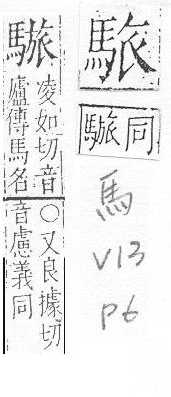 同
馬
V13
P6
凌如切音
廬傳馬名
○又良據切
音慮義同